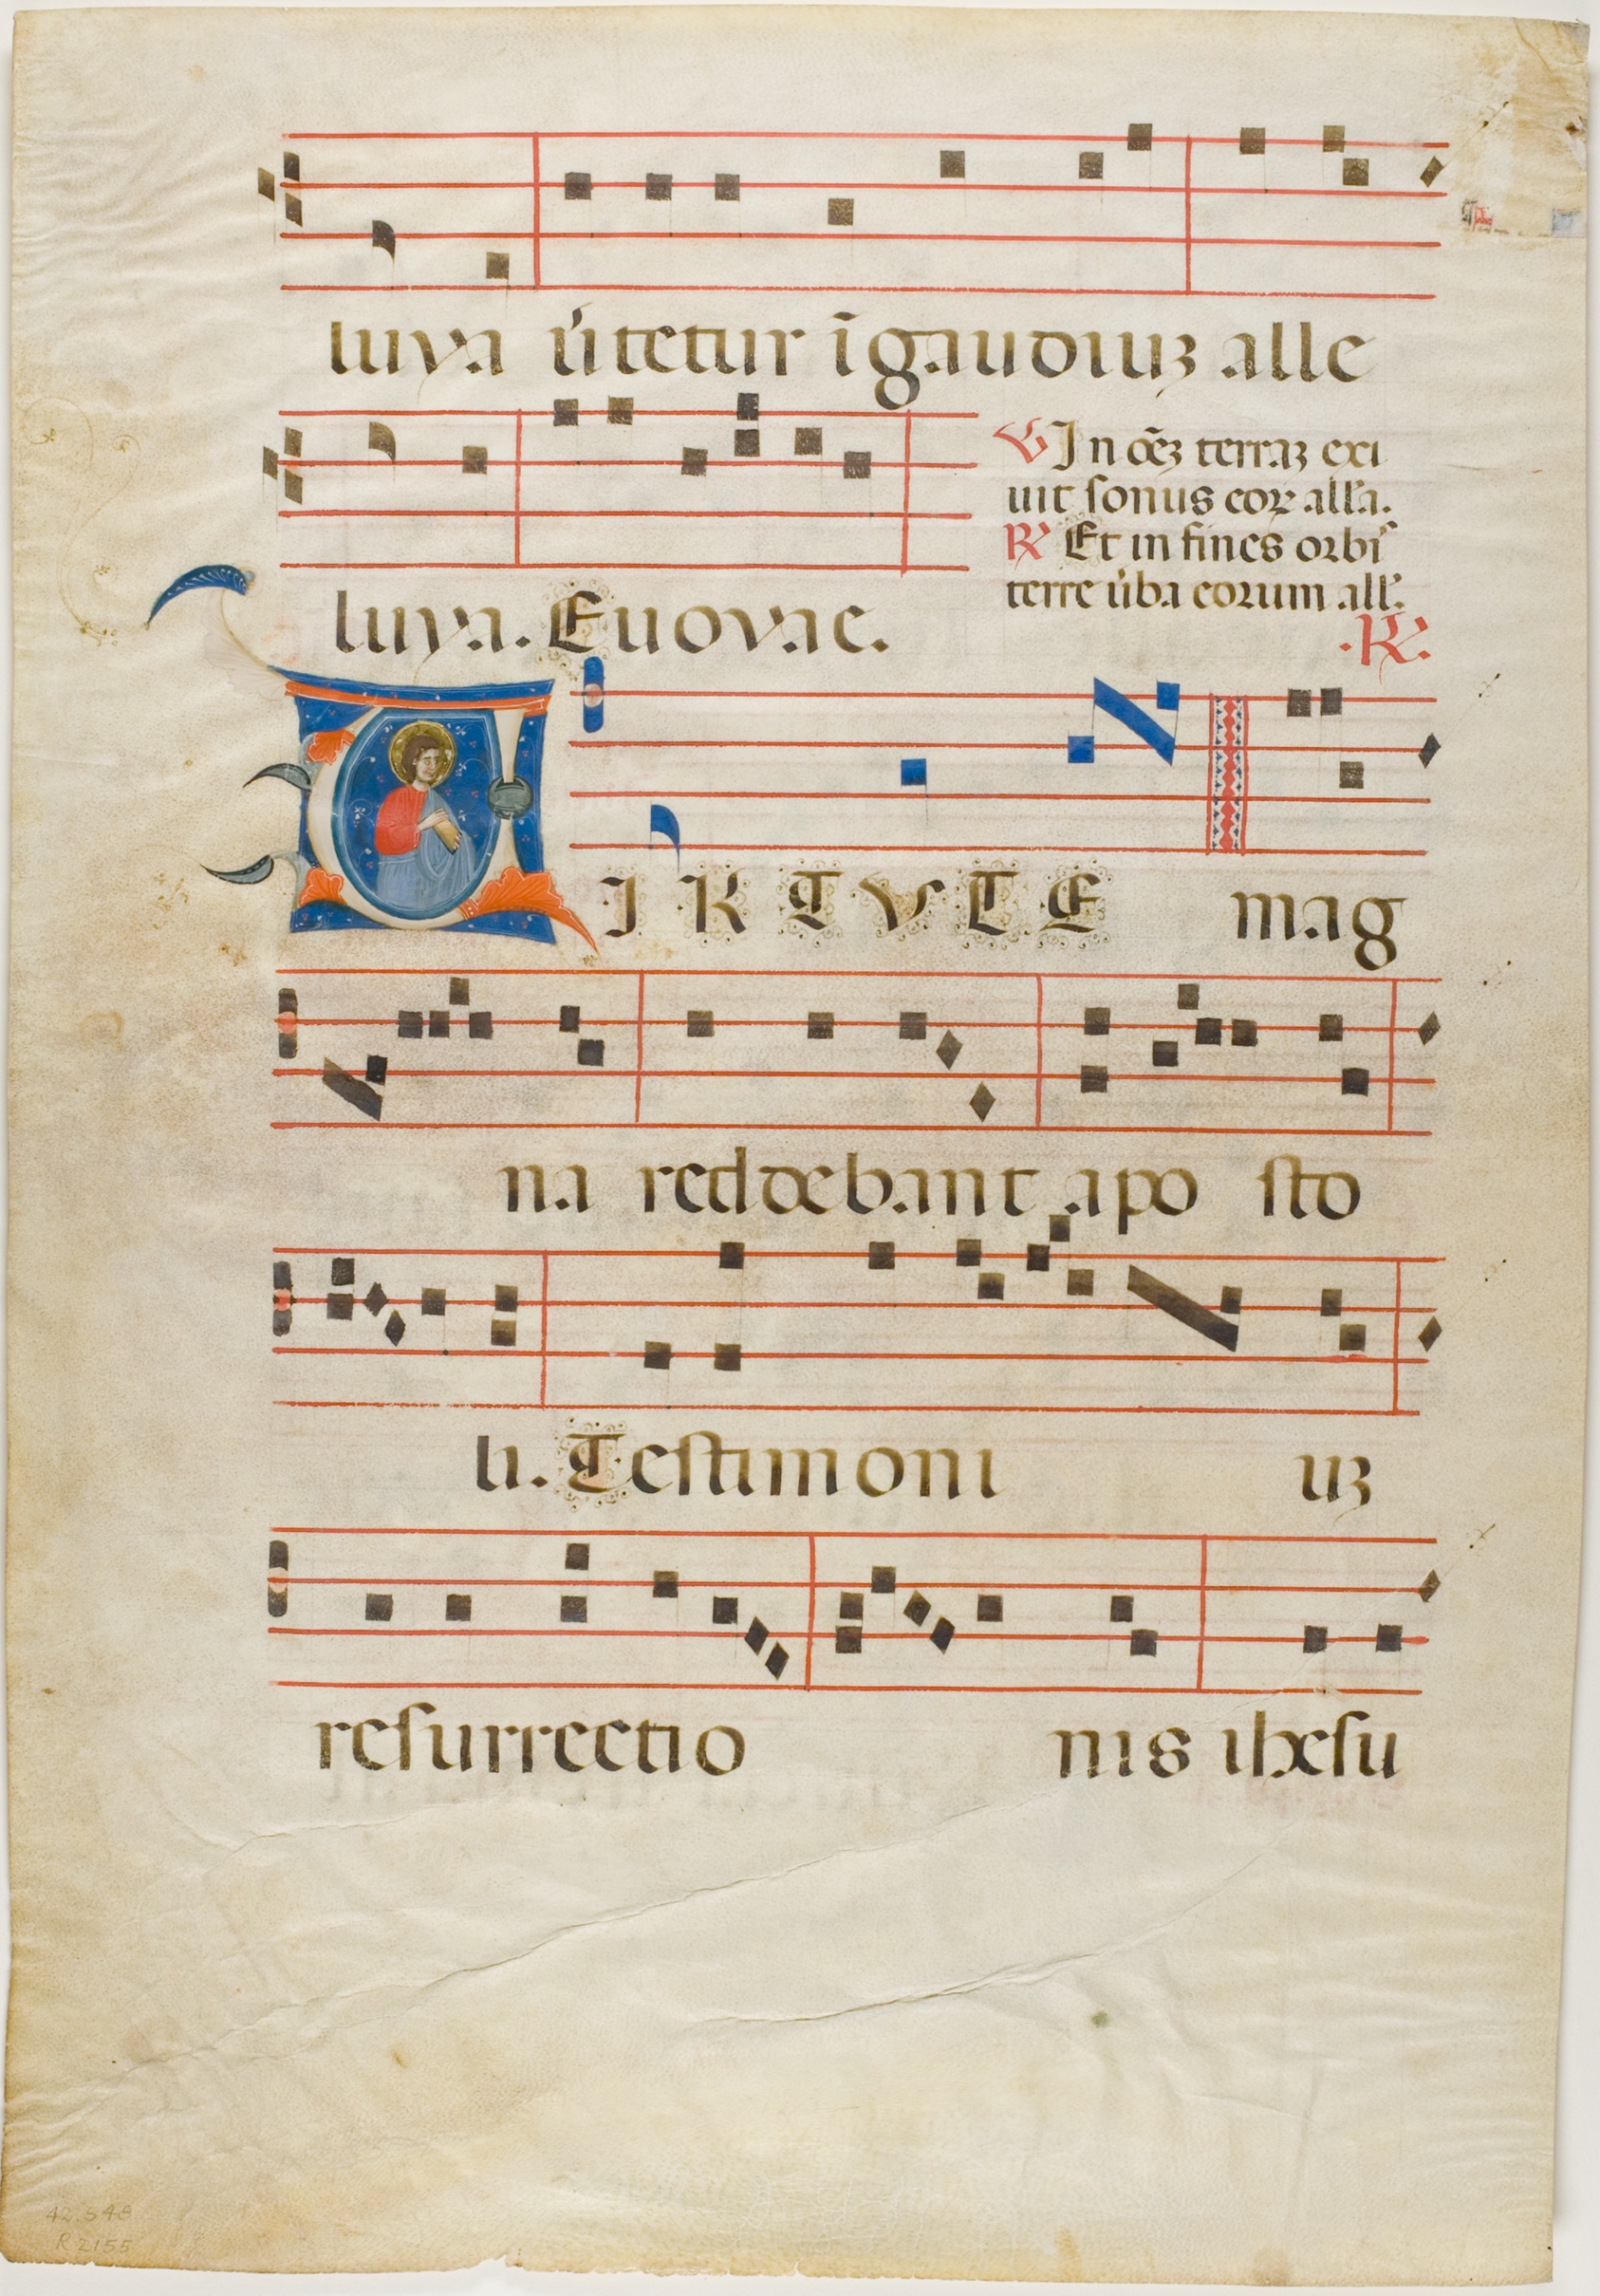 luya u̓tetur ī gaudiuꝫ alle
luya. Euovae.
℣ In oēꝫ terraꝫ exi
uit ſonus coꝝ all̓a.
℟ Et in fines orbiˢ
terre u̓ba eorum all̓.
.℟.
VIRTVTE mag
na reddebant apo ſto
li. Teſtimoni uꝫ
reſurrectio nis iheſu
42.548
R2155